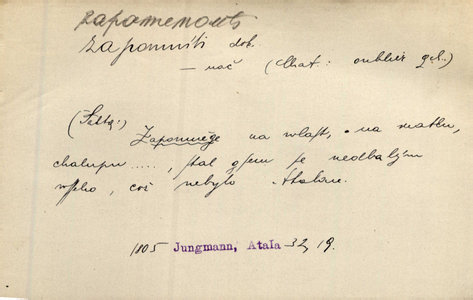 zapomenouti
zapomníti dok.
— nač (Chat.: oublier qch.)
Zapomněge na wlast, na matku,
chalupu ....., stal gsem se nedbalým
wsseho, což nebylo Atalou.
1805 Jungmann, Atala 32, 19.